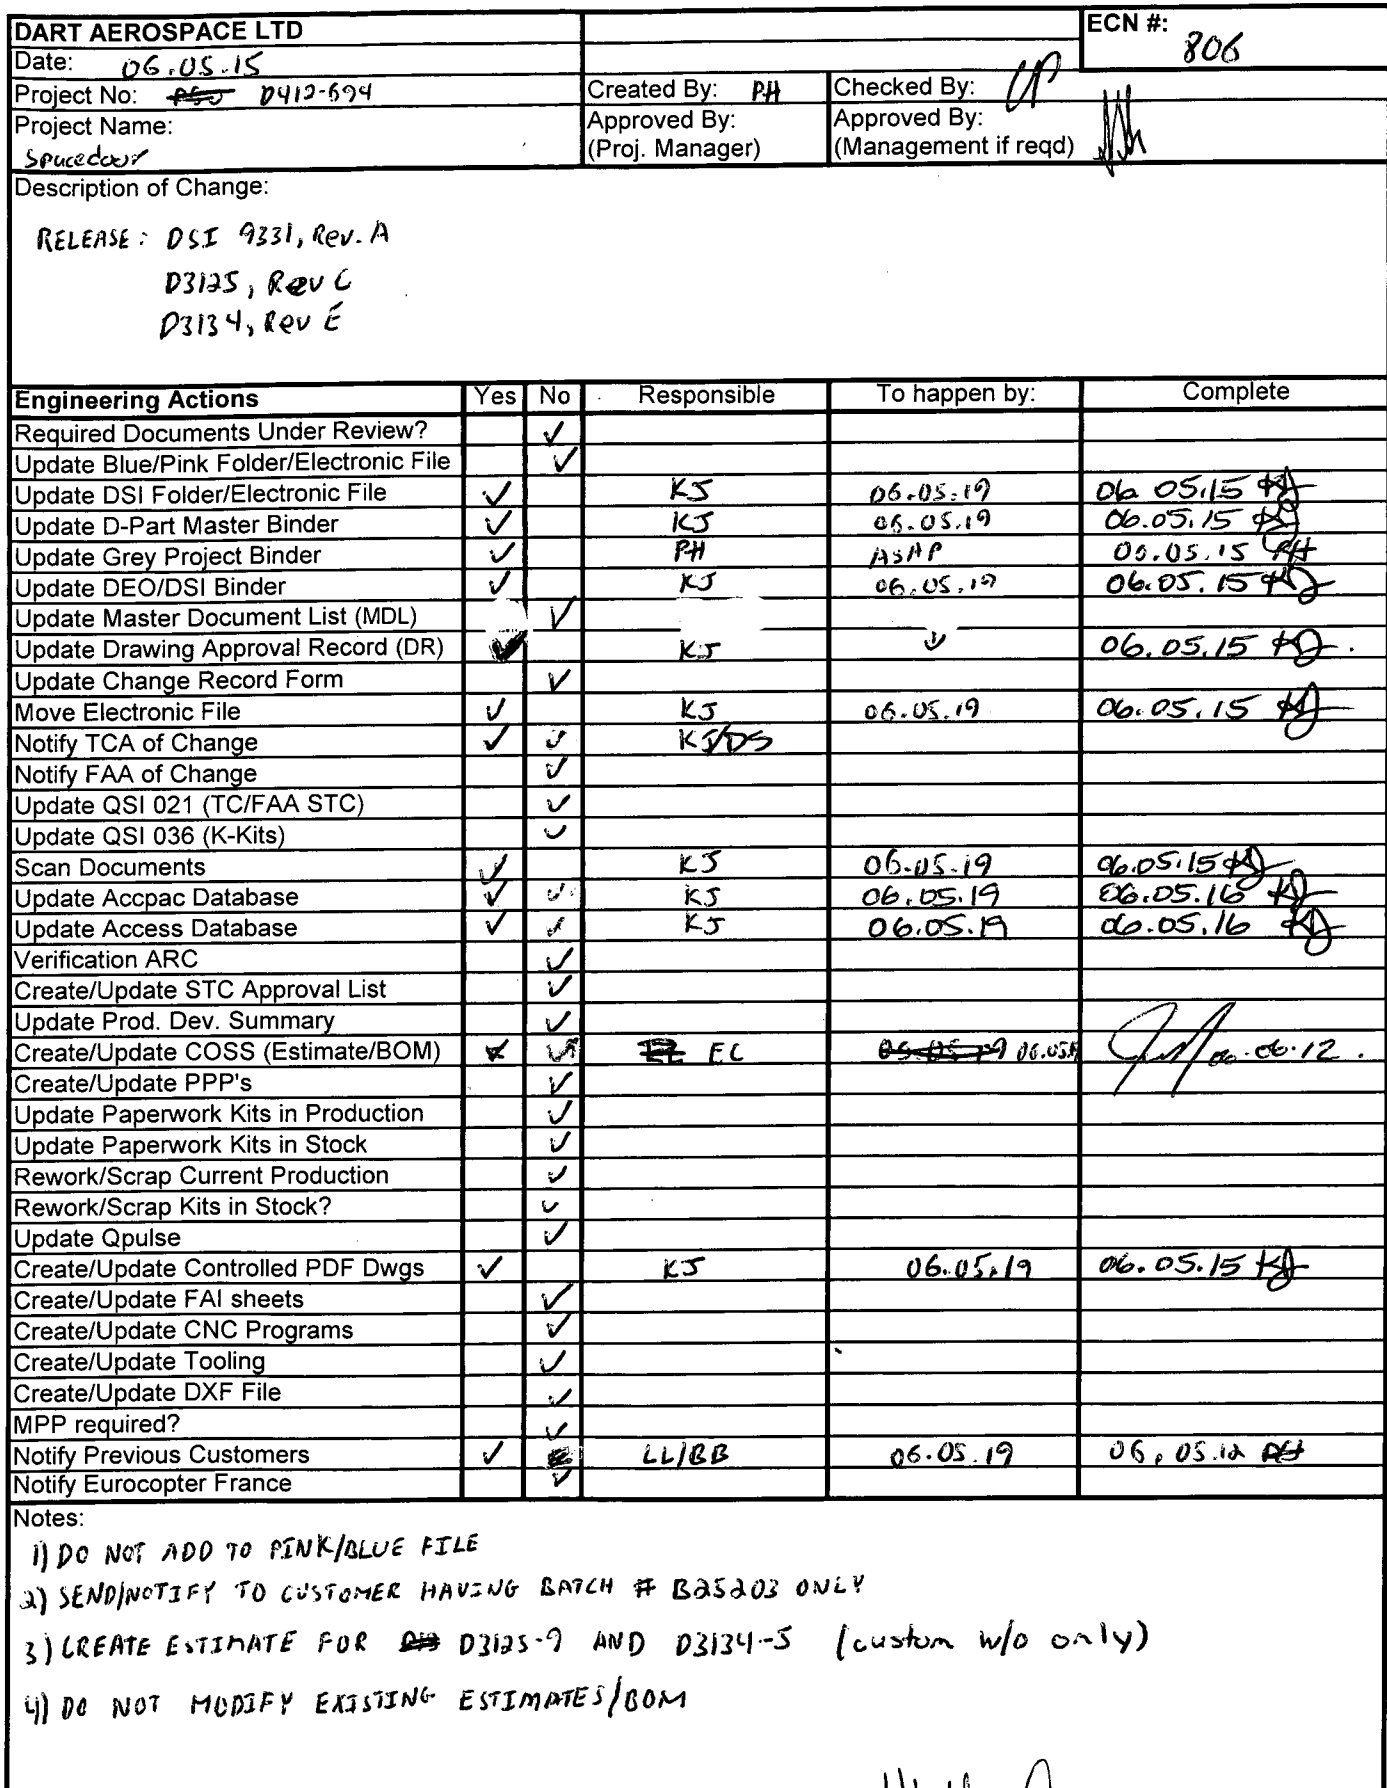 DART AEROSPACE LTD
ECN #: 806
Date: 06.05.15
Project No: D412-694
Created By: PH
Checked By:
Project Name:
Spacedoor
Approved By:
(Proj. Manager)
Approved By:
(Management if reqd)
Description of Change:
RELEASE: DSI 9331, Rev. A
D3125, Rev C
D3134, Rev E
Engineering Actions Yes No Responsible To happen by: Complete
Required Documents Under Review? ✓
Update Blue/Pink Folder/Electronic File ✓
Update DSI Folder/Electronic File ✓ KJ 06.05.19 06.05.15 KJ
Update D-Part Master Binder ✓ KJ 06.05.19 06.05.15 KJ
Update Grey Project Binder ✓ PH ASAP 06.05.15 PH
Update DEO/DSI Binder ✓ KJ 06.05.19 06.05.15 KJ
Update Master Document List (MDL) ✓
Update Drawing Approval Record (DR) ✓ KJ ↓ 06.05.15 KJ
Update Change Record Form ✓
Move Electronic File ✓ KJ 06.05.19 06.05.15 KJ
Notify TCA of Change ✓ ✓ KJ/DS
Notify FAA of Change ✓
Update QSI 021 (TC/FAA STC) ✓
Update QSI 036 (K-Kits) ✓
Scan Documents ✓ KJ 06.05.19 06.05.15 KJ
Update Accpac Database ✓ ✓ KJ 06.05.19 06.05.16 KJ
Update Access Database ✓ ✓ KJ 06.05.19 06.05.16 KJ
Verification ARC ✓
Create/Update STC Approval List ✓
Update Prod. Dev. Summary ✓
Create/Update COSS (Estimate/BOM) ✓ ✓ EC 06.06.12.
Create/Update PPP's ✓
Update Paperwork Kits in Production ✓
Update Paperwork Kits in Stock ✓
Rework/Scrap Current Production ✓
Rework/Scrap Kits in Stock? ✓
Update Qpulse ✓
Create/Update Controlled PDF Dwgs ✓ KJ 06.05.19 06.05.15 KJ
Create/Update FAI sheets ✓
Create/Update CNC Programs ✓
Create/Update Tooling ✓
Create/Update DXF File ✓
MPP required? ✓
Notify Previous Customers ✓ LL/BB 06.05.19 06.05.12 PH
Notify Eurocopter France ✓
Notes:
1) DO NOT ADD TO PINK/BLUE FILE
2) SEND/NOTIFY TO CUSTOMER HAVING BATCH # B25203 ONLY
3) CREATE ESTIMATE FOR D3125-9 AND D3134-5 (custom w/o only)
4) DO NOT MODIFY EXISTING ESTIMATES/BOM